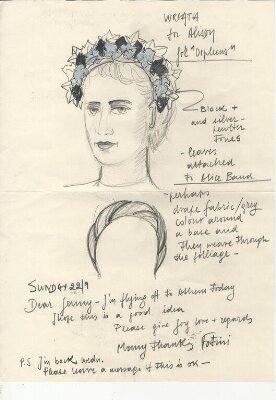 WREATH
for Alison
for "Orpheus"
Black +
and silver -
pewter
Tones
- leaves
attached
to Alice Band
- perhaps
drape fabric/grey
colour around
a base and
they weave through
the foliage -
SUNDAY 22/9
Dear Jenny - I'm flying off to Athens Today
I hope this is a good idea
Please give Joy love + regards
Many Thanks Fotini
P.S I'm back weds.
Please leave a message if this is OK -